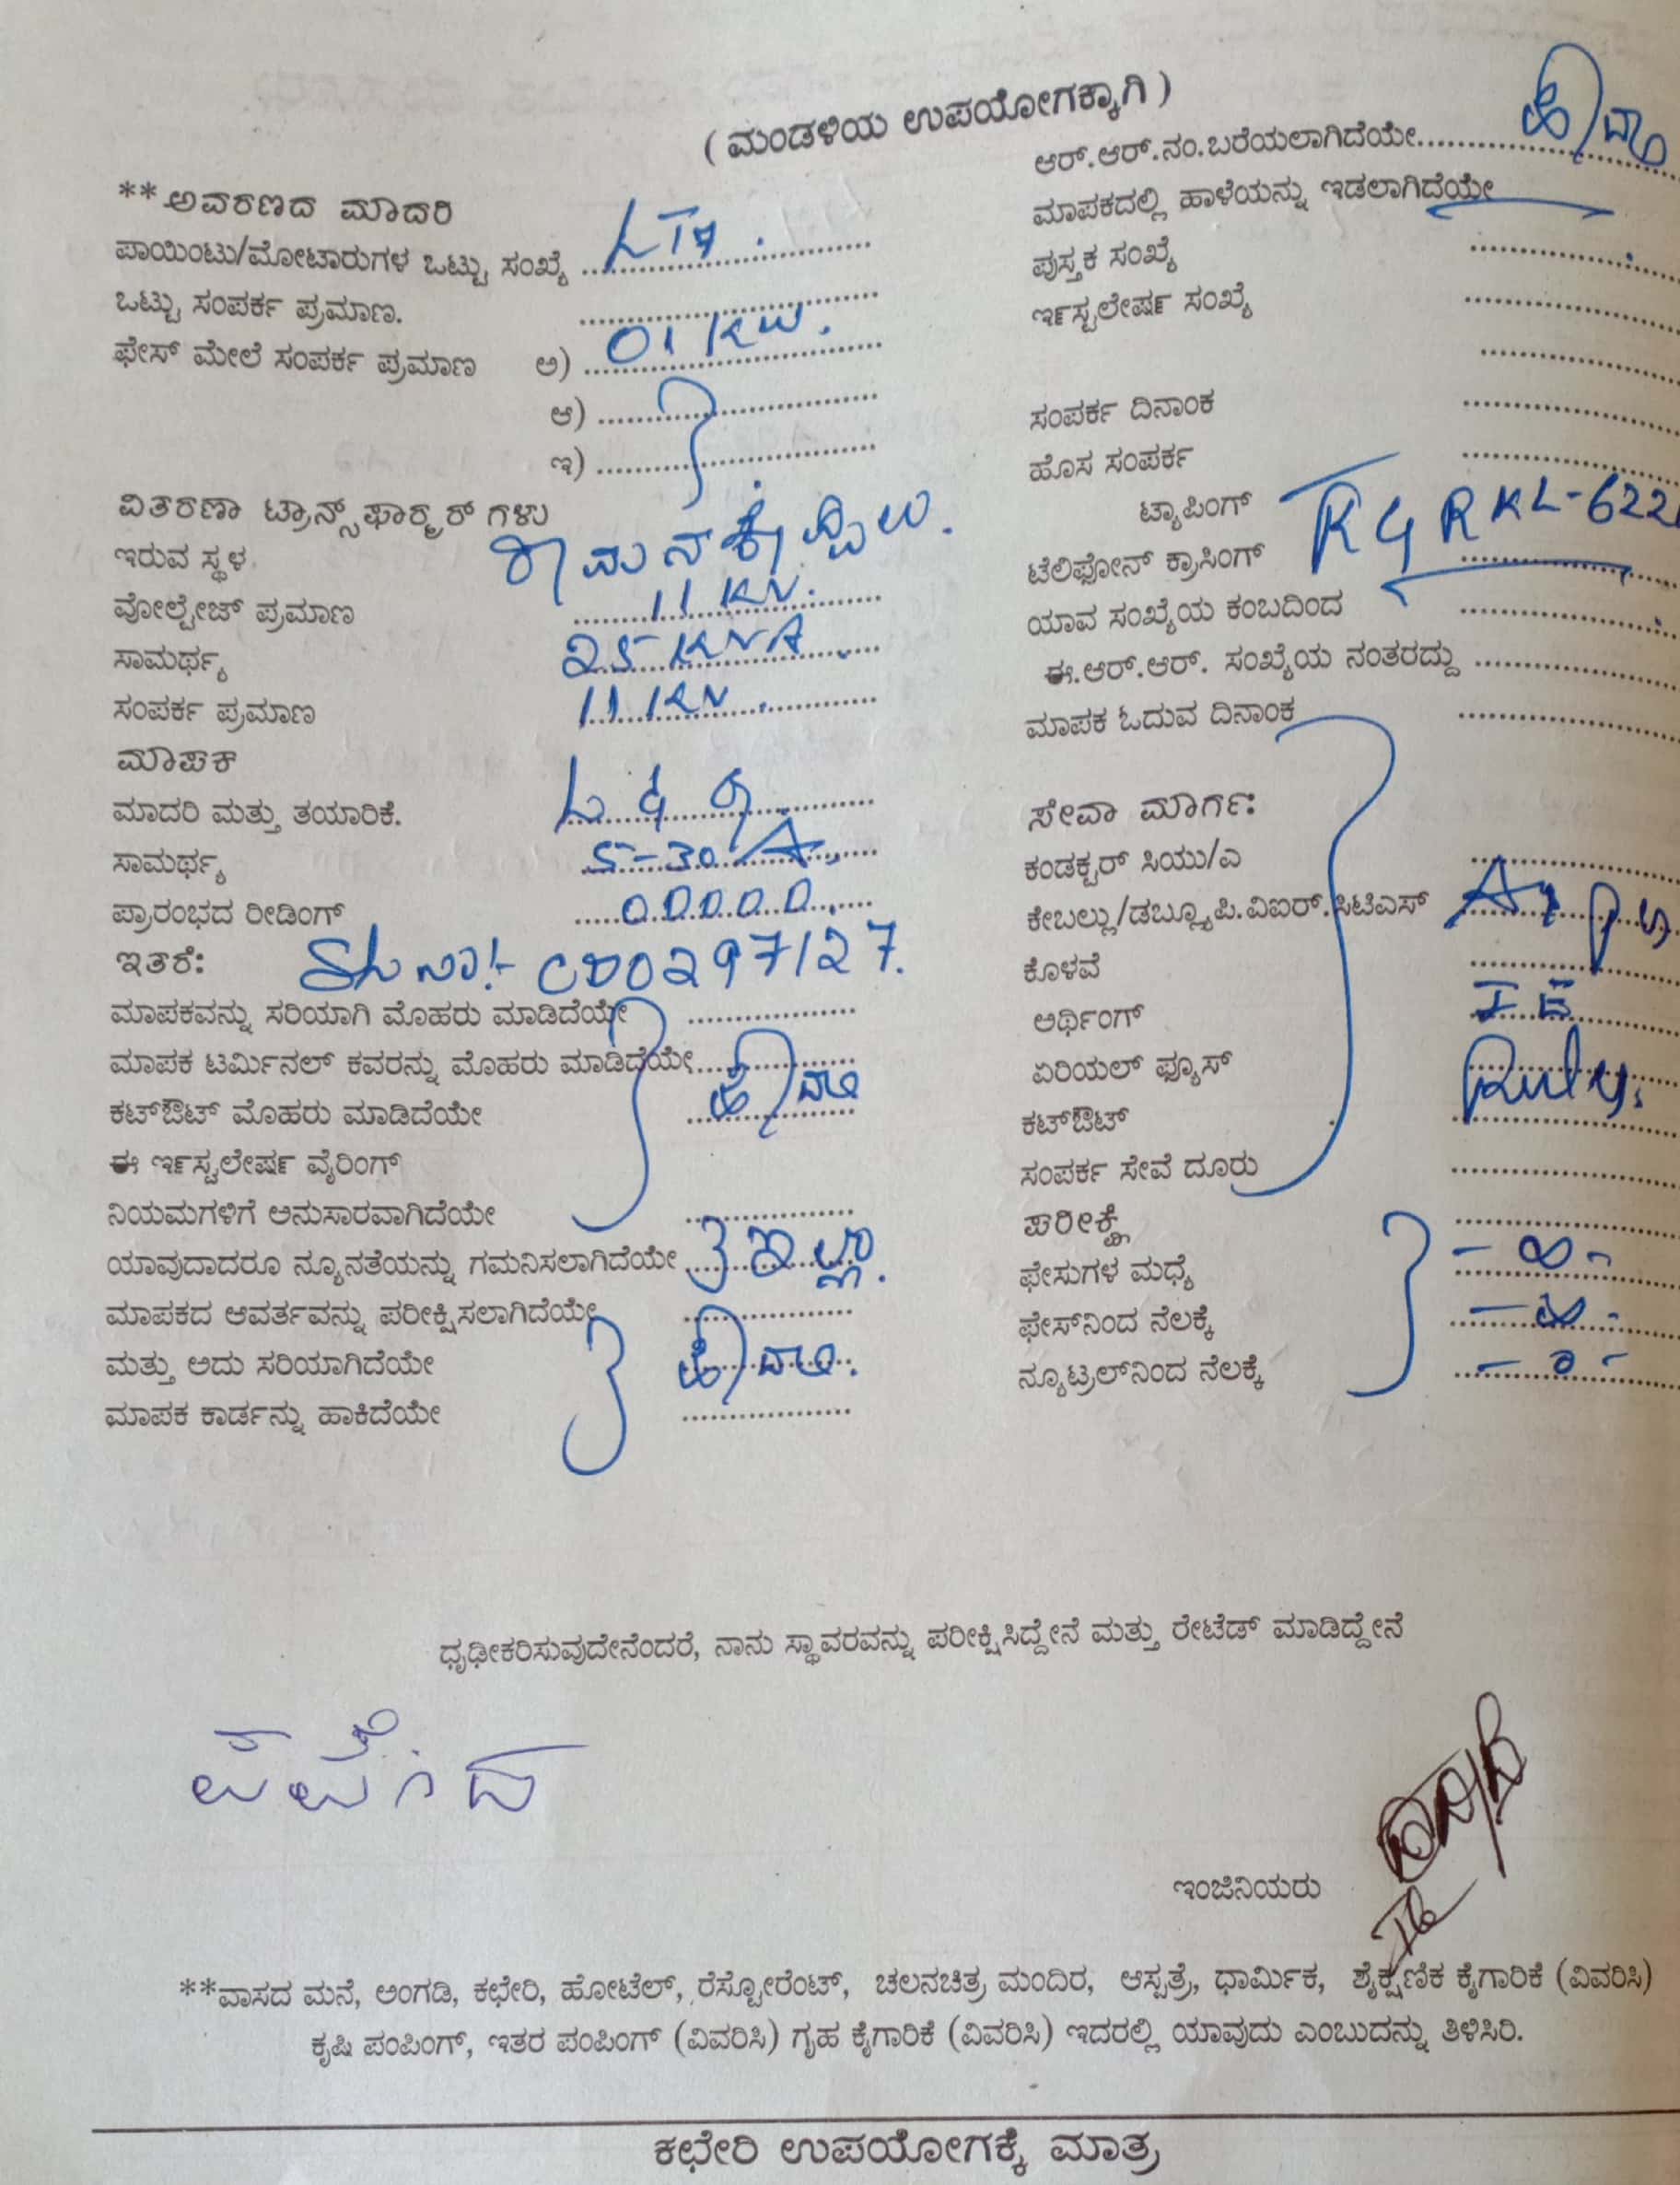 ( ಮಂಡಳಿಯ ಉಪಯೋಗಕ್ಕಾಗಿ )
** ಅವರಣದ ಮಾದರಿ
ಪಾಯಿಂಟು/ಮೋಟಾರುಗಳ ಒಟ್ಟು ಸಂಖ್ಯೆ
ಒಟ್ಟು ಸಂಪರ್ಕ ಪ್ರಮಾಣ.
ಫೇಸ್ ಮೇಲೆ ಸಂಪರ್ಕ ಪ್ರಮಾಣ ಅ) 01 KW.
ಆ)
ಇ)
ವಿತರಣಾ ಟ್ರಾನ್ಸ್‌ಫಾರ್ಮರ್ ಗಳು
ಇರುವ ಸ್ಥಳ
ವೋಲ್ಟೇಜ್ ಪ್ರಮಾಣ 11 KV.
ಸಾಮರ್ಥ್ಯ 25 KVA.
ಸಂಪರ್ಕ ಪ್ರಮಾಣ 11 KV.
ಮಾಪಕ
ಮಾದರಿ ಮತ್ತು ತಯಾರಿಕೆ. L & G
ಸಾಮರ್ಥ್ಯ 5-30 A.
ಪ್ರಾರಂಭದ ರೀಡಿಂಗ್ 00000.
ಇತರೆ: SL No:- CD0297127.
ಮಾಪಕವನ್ನು ಸರಿಯಾಗಿ ಮೊಹರು ಮಾಡಿದೆಯೇ
ಮಾಪಕ ಟರ್ಮಿನಲ್ ಕವರನ್ನು ಮೊಹರು ಮಾಡಿದೆಯೇ ಹೌದು
ಕಟ್‌ಔಟ್ ಮೊಹರು ಮಾಡಿದೆಯೇ
ಈ ಇನ್‌ಸ್ಟಲೇಷನ್ ವೈರಿಂಗ್
ನಿಯಮಗಳಿಗೆ ಅನುಸಾರವಾಗಿದೆಯೇ
ಯಾವುದಾದರೂ ನ್ಯೂನತೆಯನ್ನು ಗಮನಿಸಲಾಗಿದೆಯೇ ಇಲ್ಲ.
ಮಾಪಕದ ಆವರ್ತವನ್ನು ಪರೀಕ್ಷಿಸಲಾಗಿದೆಯೇ
ಮತ್ತು ಅದು ಸರಿಯಾಗಿದೆಯೇ ಹೌದು.
ಮಾಪಕ ಕಾರ್ಡನ್ನು ಹಾಕಿದೆಯೇ
ಆರ್.ಆರ್.ನಂ.ಬರೆಯಲಾಗಿದೆಯೇ ಹೌದು
ಮಾಪಕದಲ್ಲಿ ಹಾಳೆಯನ್ನು ಇಡಲಾಗಿದೆಯೇ
ಪುಸ್ತಕ ಸಂಖ್ಯೆ
ಇನ್‌ಸ್ಟಲೇಷನ್ ಸಂಖ್ಯೆ
ಸಂಪರ್ಕ ದಿನಾಂಕ
ಹೊಸ ಸಂಪರ್ಕ
ಟ್ಯಾಪಿಂಗ್ KGRKL-622
ಟೆಲಿಫೋನ್ ಕ್ರಾಸಿಂಗ್
ಯಾವ ಸಂಖ್ಯೆಯ ಕಂಬದಿಂದ
ಈ.ಆರ್.ಆರ್. ಸಂಖ್ಯೆಯ ನಂತರದ್ದು
ಮಾಪಕ ಓದುವ ದಿನಾಂಕ
ಸೇವಾ ಮಾರ್ಗ:
ಕಂಡಕ್ಟರ್ ಸಿಯು/ಎ
ಕೇಬಲ್ಲು/ಡಬ್ಲ್ಯೂಪಿ.ವಿಐರ್.ಸಿಟಿಎಸ್
ಕೊಳವೆ
ಅರ್ಥಿಂಗ್
ಏರಿಯಲ್ ಫ್ಯೂಸ್
ಕಟ್‌ಔಟ್
ಸಂಪರ್ಕ ಸೇವೆ ದೂರು
ಪರೀಕ್ಷೆ
ಫೇಸುಗಳ ಮಧ್ಯೆ - ∞ -
ಫೇಸ್‌ನಿಂದ ನೆಲಕ್ಕೆ - ∞ -
ನ್ಯೂಟ್ರಲ್‌ನಿಂದ ನೆಲಕ್ಕೆ - 0 -
ಧೃಢೀಕರಿಸುವುದೇನೆಂದರೆ, ನಾನು ಸ್ಥಾವರವನ್ನು ಪರೀಕ್ಷಿಸಿದ್ದೇನೆ ಮತ್ತು ರೇಟೆಡ್ ಮಾಡಿದ್ದೇನೆ
ಇಂಜಿನಿಯರು
**ವಾಸದ ಮನೆ, ಅಂಗಡಿ, ಕಛೇರಿ, ಹೋಟೆಲ್, ರೆಸ್ಟೋರೆಂಟ್, ಚಲನಚಿತ್ರ ಮಂದಿರ, ಆಸ್ಪತ್ರೆ, ಧಾರ್ಮಿಕ, ಶೈಕ್ಷಣಿಕ ಕೈಗಾರಿಕೆ (ವಿವರಿಸಿ)
ಕೃಷಿ ಪಂಪಿಂಗ್, ಇತರ ಪಂಪಿಂಗ್ (ವಿವರಿಸಿ) ಗೃಹ ಕೈಗಾರಿಕೆ (ವಿವರಿಸಿ) ಇದರಲ್ಲಿ ಯಾವುದು ಎಂಬುದನ್ನು ತಿಳಿಸಿರಿ.
ಕಛೇರಿ ಉಪಯೋಗಕ್ಕೆ ಮಾತ್ರ